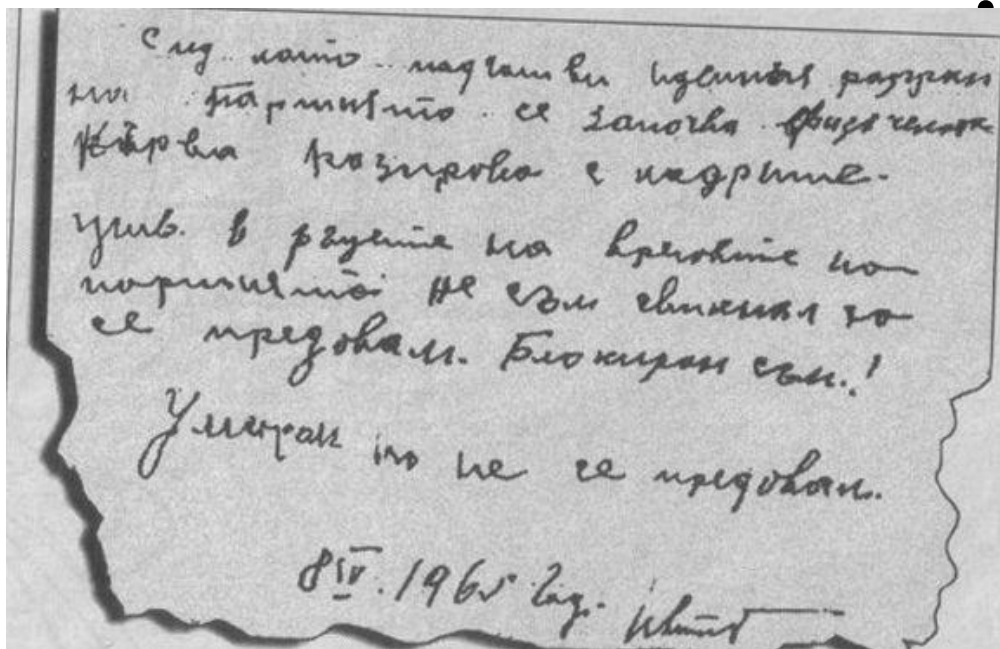 След като надгави идейния разгром
на Партията се започва физическа
кървва разправа с кадрите.
жив. в ръцете на враговете на
партията не съм свикнал да
се предовам. Блокиран съм.!
Умирам но не се предовам.
8 IV. 1965 год.